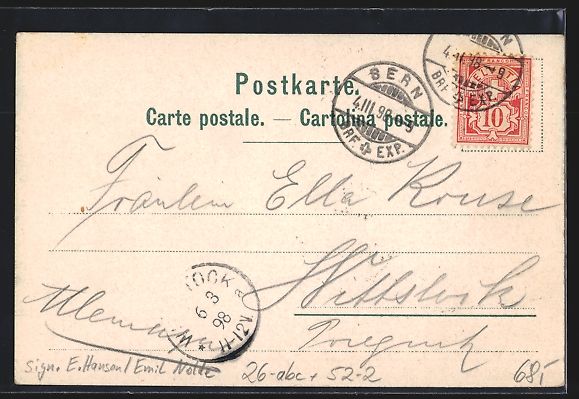 Postkarte.
Carte postale. — Cartolina postale.
BERN
4.III.98
BRF. EXP.
BERN
BRF. EXP.
HELVETIA
10
Fräulein Ella Krouse
Wittstock
Priegnitz
Allemagne
6 3
98
11-12V
Sign. E. Hansen / Emil Nolde
26-abc + 52-2
68,-